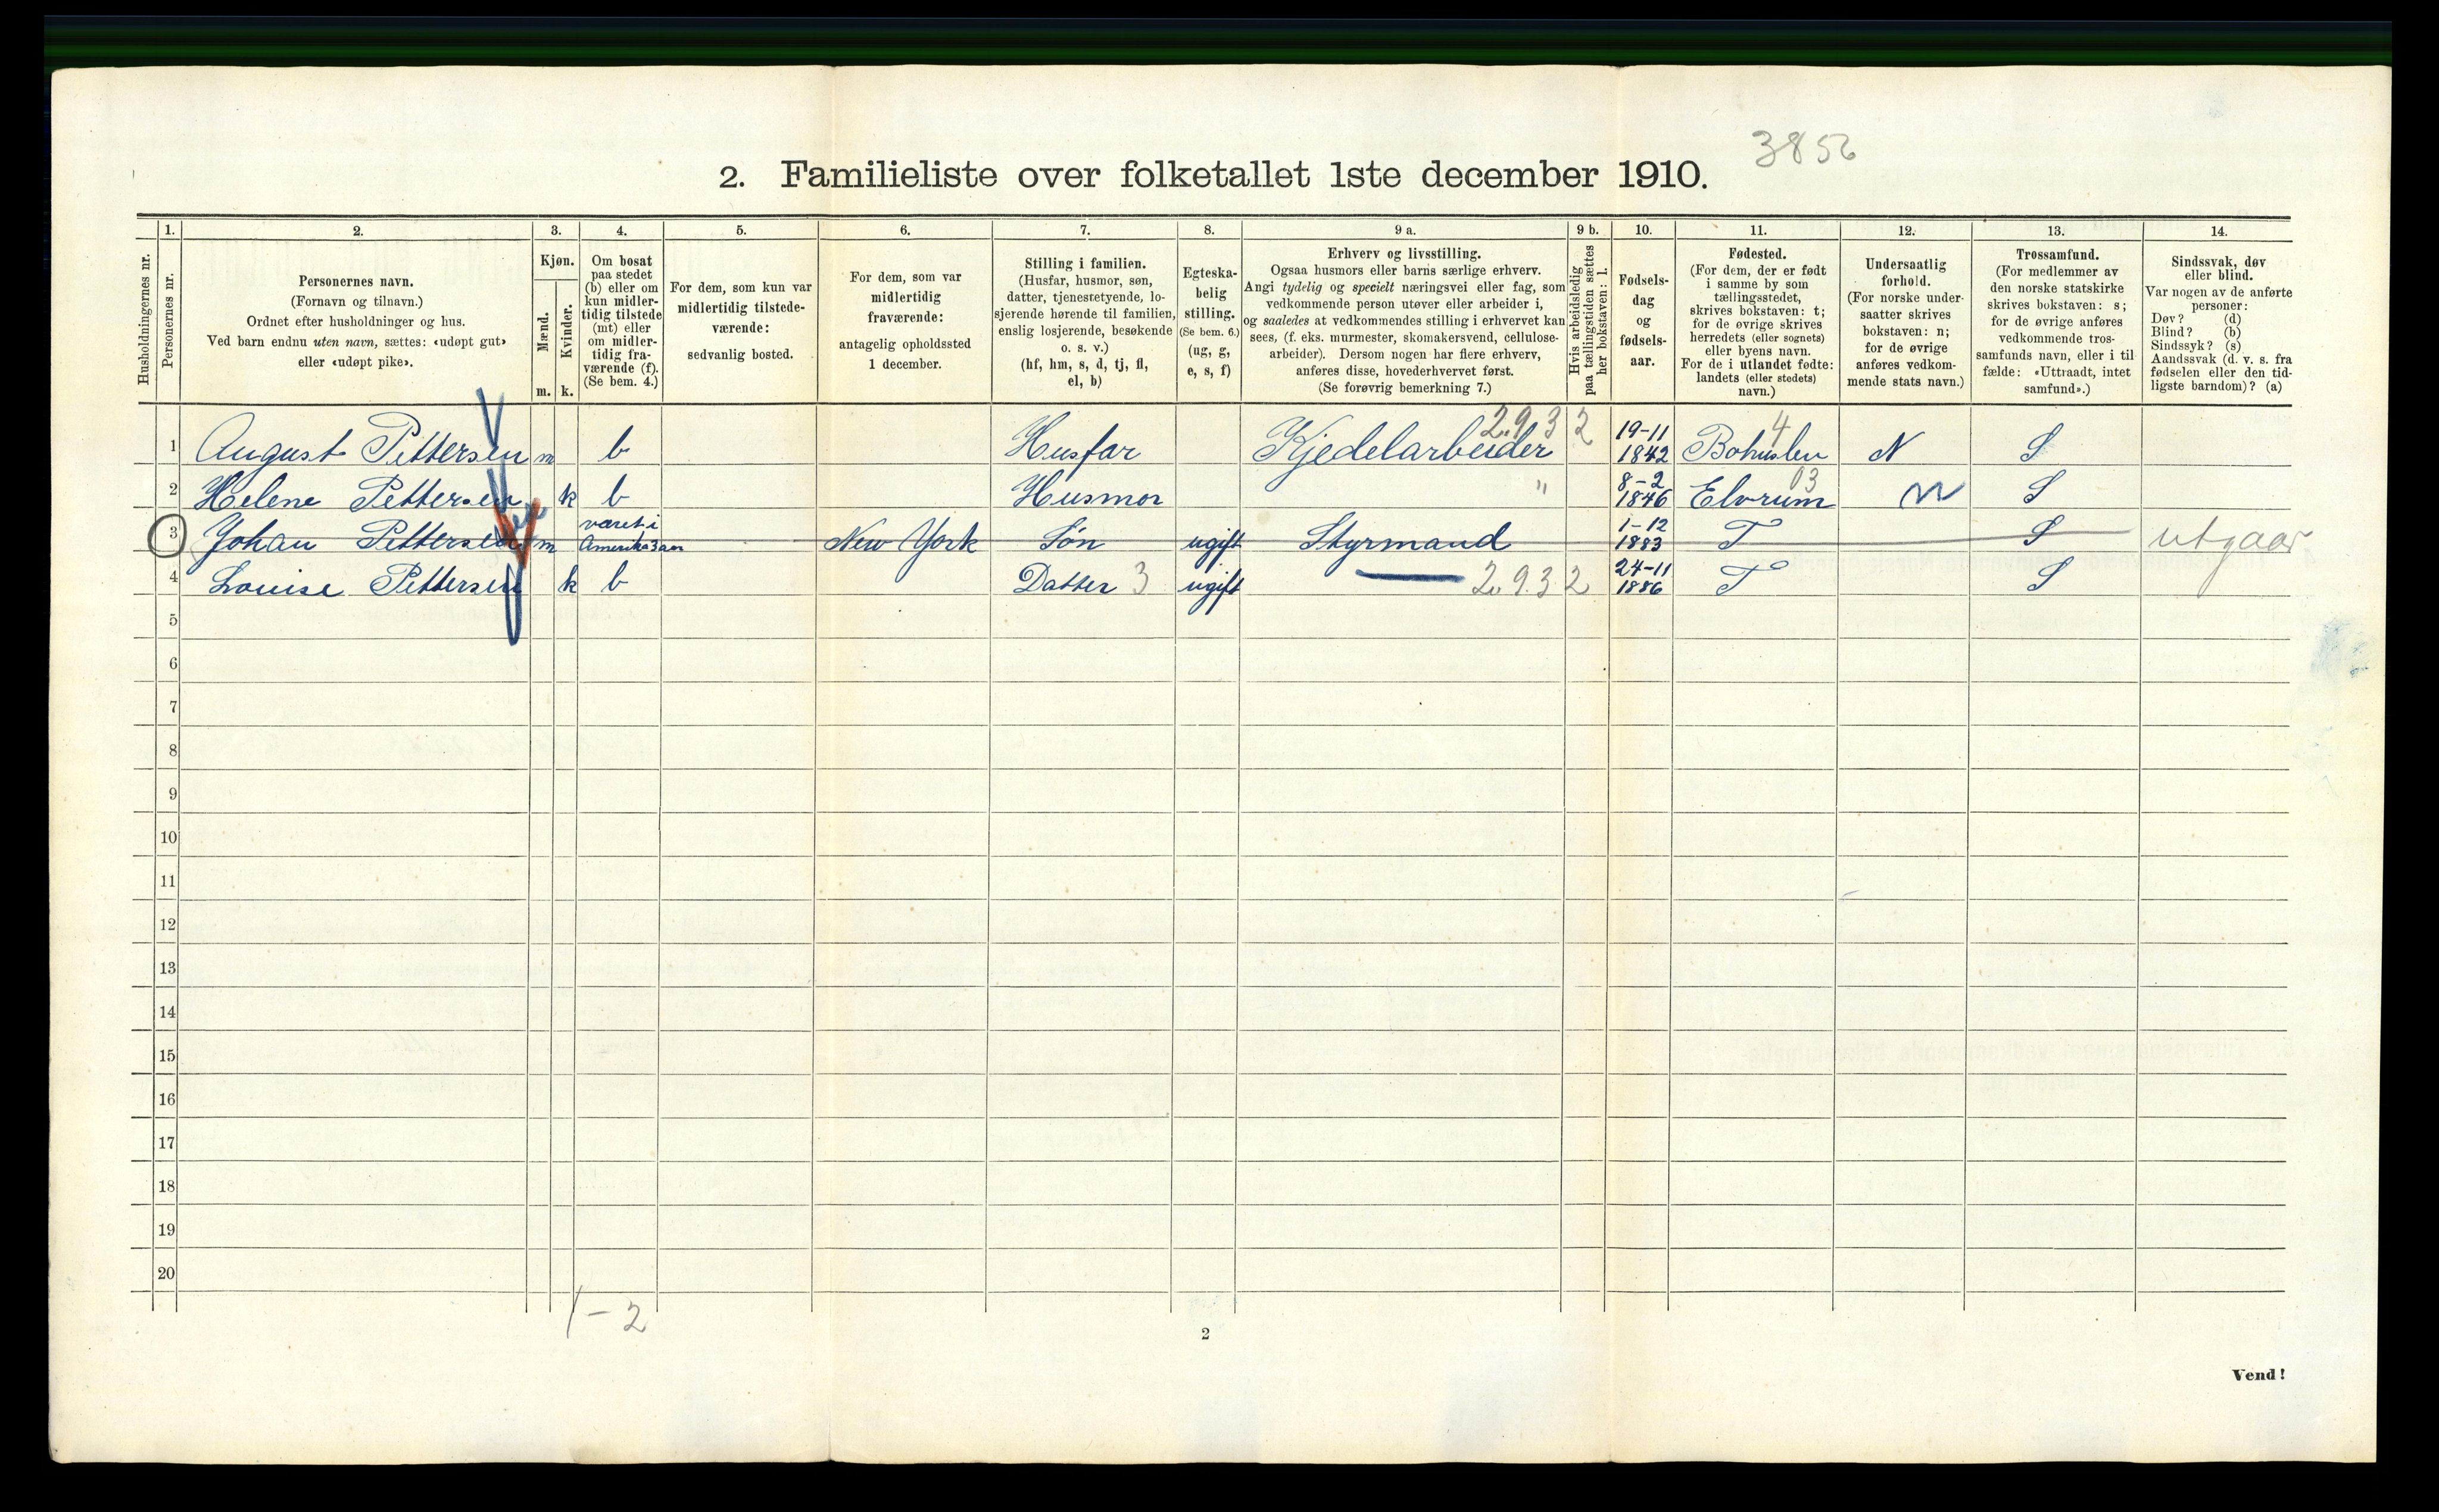 3856
2. Familieliste over folketallet 1ste december 1910.
Husholdningernes nr.
1.
Personernes nr.
2.
Personernes navn.
(Fornavn og tilnavn.)
Ordnet efter husholdninger og hus.
Ved barn endnu uten navn, sættes: «udøpt gut»
eller «udøpt pike».
3.
Kjøn.
Mænd.
Kvinder.
m. k.
4.
Om bosat
paa stedet
(b) eller om
kun midler-
tidig tilstede
(mt) eller
om midler-
tidig fra-
værende (f).
(Se bem. 4.)
5.
For dem, som kun var
midlertidig tilstede-
værende:
sedvanlig bosted.
6.
For dem, som var
midlertidig
fraværende:
antagelig opholdssted
1 december.
7.
Stilling i familien.
(Husfar, husmor, søn,
datter, tjenestetyende, lo-
sjerende hørende til familien,
enslig losjerende, besøkende
o. s. v.)
(hf, hm, s, d, tj, fl,
el, b)
8.
Egteska-
belig
stilling.
(Se bem. 6.)
(ug, g,
e, s, f)
9 a.
Erhverv og livsstilling.
Ogsaa husmors eller barns særlige erhverv.
Angi tydelig og specielt næringsvei eller fag, som
vedkommende person utøver eller arbeider i,
og saaledes at vedkommendes stilling i erhvervet kan
sees, (f. eks. murmester, skomakersvend, cellulose-
arbeider). Dersom nogen har flere erhverv,
anføres disse, hovederhvervet først.
(Se forøvrig bemerkning 7.)
9 b.
Hvis arbeidsledig
paa tællingstiden sættes
her bokstaven: l.
10.
Fødsels-
dag
og
fødsels-
aar.
11.
Fødested.
(For dem, der er født
i samme by som
tællingsstedet,
skrives bokstaven: t;
for de øvrige skrives
herredets (eller sognets)
eller byens navn.
For de i utlandet fødte:
landets (eller stedets)
navn.)
12.
Undersaatlig
forhold.
(For norske under-
saatter skrives
bokstaven: n;
for de øvrige
anføres vedkom-
mende stats navn.)
13.
Trossamfund.
(For medlemmer av
den norske statskirke
skrives bokstaven: s;
for de øvrige anføres
vedkommende tros-
samfunds navn, eller i til-
fælde: «Uttraadt, intet
samfund».)
14.
Sindssvak, døv
eller blind.
Var nogen av de anførte
personer:
Døv? (d)
Blind? (b)
Sindssyk? (s)
Aandssvak (d. v. s. fra
fødselen eller den tid-
ligste barndom)? (a)
1 August Pettersen m b Husfar Kjedelarbeider 2.93 2 19-11 1842 Bohuslen 4 N S
2 Helene Pettersen k b Husmor " 8-2 1846 Elvrum 03 n S
3 Johan Pettersen m været i Amerika 3 aar New York Søn ugift Styrmand 1-12 1883 T S utgaar
4 Louise Pettersen k b Datter 3 ugift 2.93 2 24-11 1886 T S
5
6
7
8
9
10
11
12
13
14
15
16
17
18
19
20
1-2
2
Vend!